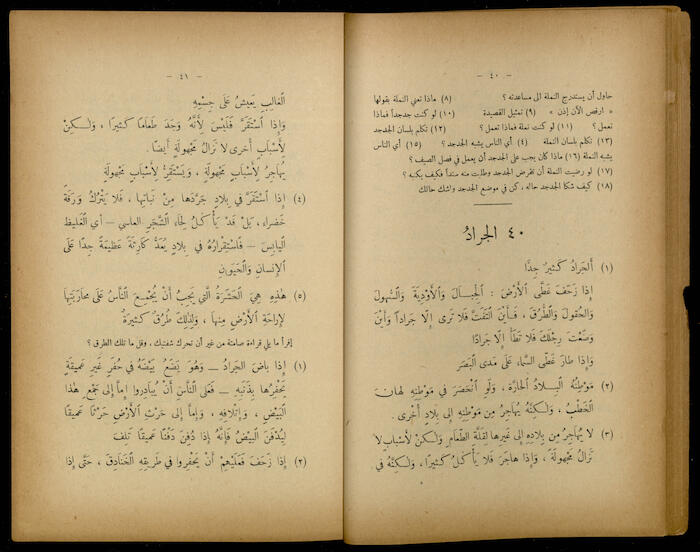 — ٤٠ —
حاول أن يستدرج النملة الى مساعدته ؟ (٨) ماذا تعني النملة بقولها
« ارقص الآن إذن » (٩) تمثيل القصيدة (١٠) لو كنت جدجداً فماذا
تعمل ؟ (١١) لو كنت نملة فماذا تعمل ؟ (١٢) تكلم بلسان الجدجد
(١٣) تكلم بلسان النملة (٤) أي الناس يشبه الجدجد ؟ (١٥) أي الناس
يشبه النملة (١٦) ماذا كان يجب على الجدجد أن يعمل في فصل الصيف ؟
(١٧) لو رضيت النملة أن تقرض الجدجد وطلبت منه سنداً فكيف يكتبه ؟
(١٨) كيف شكا الجدجد حاله ، كن في موضع الجدجد واشك حالك
٤٠ الجرادُ
(١) أَلجَرادُ كَثيرٌ جِدًّا
إِذا زَحَفَ غَطَّى ٱلأَرْضَ : ٱلجِبالَ وَٱلأَوْدِيَةَ وَٱلسُّهولَ
وَٱلحُقولَ وَٱلطُّرُقَ ، فَأَينَ ٱلتَفَتَّ فَلا تَرى إِلّا جَراداً وَأَينَ
وَضَعتَ رِجلَكَ فَلا تَطَأُ إِلّا جَرادًا
وَإِذا طارَ غَطَّى السَّماءَ عَلى مَدى البَصَرِ
(٢) مَوْطِنُهُ البِلادُ الحارَّةُ ، وَلَوِ ٱنْحَصَرَ في مَوْطِنِهِ لَهانَ
ٱلخَطْبُ ، وَلٰكِنَّهُ يُهاجِرُ مِن مَوْطِنِهِ إِلى بِلادٍ أُخْرى .
(٣) لا يُهاجِرُ مِن بِلادِهِ إِلى غَيرِها لِقِلَّةِ الطَّعامِ وَلٰكِنْ لِأَسْبابٍ لا
تَزالُ مَجْهولَةً ، وَإِذا هاجَرَ فَلا يَأْكُلُ كَثيرًا ، وَلٰكِنَّهُ في
— ٤١ —
الغالِبِ يَعيشُ عَلى جِسْمِهِ
وَإِذا ٱسْتَقَرَّ فَلَيْسَ لِأَنَّهُ وَجَدَ طَعامًا كَثيرًا ، وَلٰكِنْ
لِأَسْبابٍ أُخرى لا تَزالُ مَجْهولَةً أَيضًا .
يُهاجِرُ لِأَسْبابٍ مَجْهولَةٍ ، وَيَسْتَقِرُّ لِأَسْبابٍ مَجْهولَةٍ
(٤) إِذا ٱسْتَقَرَّ في بِلادٍ جَرَّدَها مِن نَباتِها ، فَلا يَتْرُكُ وَرَقَةً
خَضْراءَ ، بَلْ قَدْ يَأْكُلُ لِحاءَ الشَّجَرِ العاسي — أَيِ الغَليظِ
اليابِسِ — فَٱسْتِقْرارُهُ في بِلادٍ يُعَدُّ كارِثَةً عَظيمَةً جِدًّا عَلى
الإِنْسانِ وَالحَيَوانِ
(٥) هٰذِهِ هِيَ الحَشَرَةُ الَّتي يَجِبُ أَنْ يُجْمِعَ النّاسُ عَلى مُحارَبَتِها
لِإِراحَةِ الأَرْضِ مِنها ، وَلِذٰلِكَ طُرُقٌ كَثيرَةٌ
إقرأ ما يلي قراءة صامتة من غير أن تحرك شفتيك ، وقل ما تلك الطرق ؟
(١) إِذا باضَ الجَرادُ — وَهُوَ يَضَعُ بَيْضَهُ في حُفَرٍ غَيرِ عَميقَةٍ
يَحْفِرُها بِذَنَبِهِ — فَعَلى النّاسِ أَنْ يُبادِروا إِمّا إِلى جَمْعِ هٰذا
البَيْضِ ، وَإِتْلافِهِ ، وَإِمّا إِلى حَرْثِ ٱلأَرْضِ حَرْثًا عَميقًا
لِيُدْفَنَ البَيْضُ فَإِنَّهُ إِذا دُفِنَ دَفْنًا عَميقًا تَلِفَ
(٢) إِذا زَحَفَ فَعَلَيْهِمْ أَنْ يَحْفِروا في طَريقِهِ الخَنادِقَ ، حَتّى إِذا